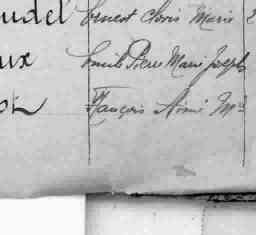 udel Ernest Clovis Marie 2
ux Emile Pierre Marie Joseph
François Aimé Mie